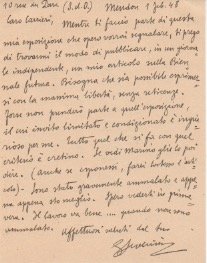 10 rue du Parc (S.d.O.) Meudon 1 Feb. 48
Caro Cavicchi, Mentre ti faccio parte di questa
mia esposizione che spero vorrai segnalare, ti prego
di trovarmi il modo di pubblicare, in un giornale
indipendente, un mio articolo sulla Bien-
nale futura. Bisogna che sia possibile esprimer-
si con la massima libertà, senza reticenze.
Forse non prenderò parte a quell'esposizione,
il cui invito limitato e condizionato è ingiu-
rioso per me. Tutto quel che si fa con quel
criterio è cretino. Se vedi Marino glie lo puoi
dire. (anche se esponessi, farei l'articolo)
Sono stato gravemente ammalato e appe-
na appena sto meglio. Spero vederti in prima-
vera. Il lavoro va bene... quando non sono
ammalato. Affettuosi saluti dal tuo
G. Severini